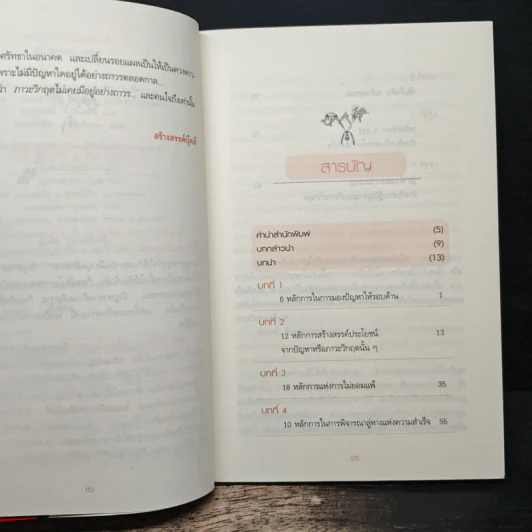 ศรัทธาในอนาคต และเปลี่ยนรอยแผลเป็นให้เป็นดวงดาว
เพราะไม่มีปัญหาใดอยู่ได้อย่างถาวรตลอดกาล...
ว่า ภาวะวิกฤตไม่เคยมีอยู่อย่างถาวร... และคนใจถึงเท่านั้น
สร้างสรรค์บุ๊คส์
(๓)
สารบัญ
คำนำสำนักพิมพ์ (5)
บทกล่าวนำ (9)
บทนำ (13)
บทที่ 1
6 หลักการในการมองปัญหาให้รอบด้าน 1
บทที่ 2
12 หลักการสร้างสรรค์ประโยชน์ 13
จากปัญหาหรือภาวะวิกฤตนั้น ๆ
บทที่ 3
18 หลักการแห่งการไม่ยอมแพ้ 35
บทที่ 4
10 หลักการในการพิจารณาสู่ทางแห่งความสำเร็จ 55